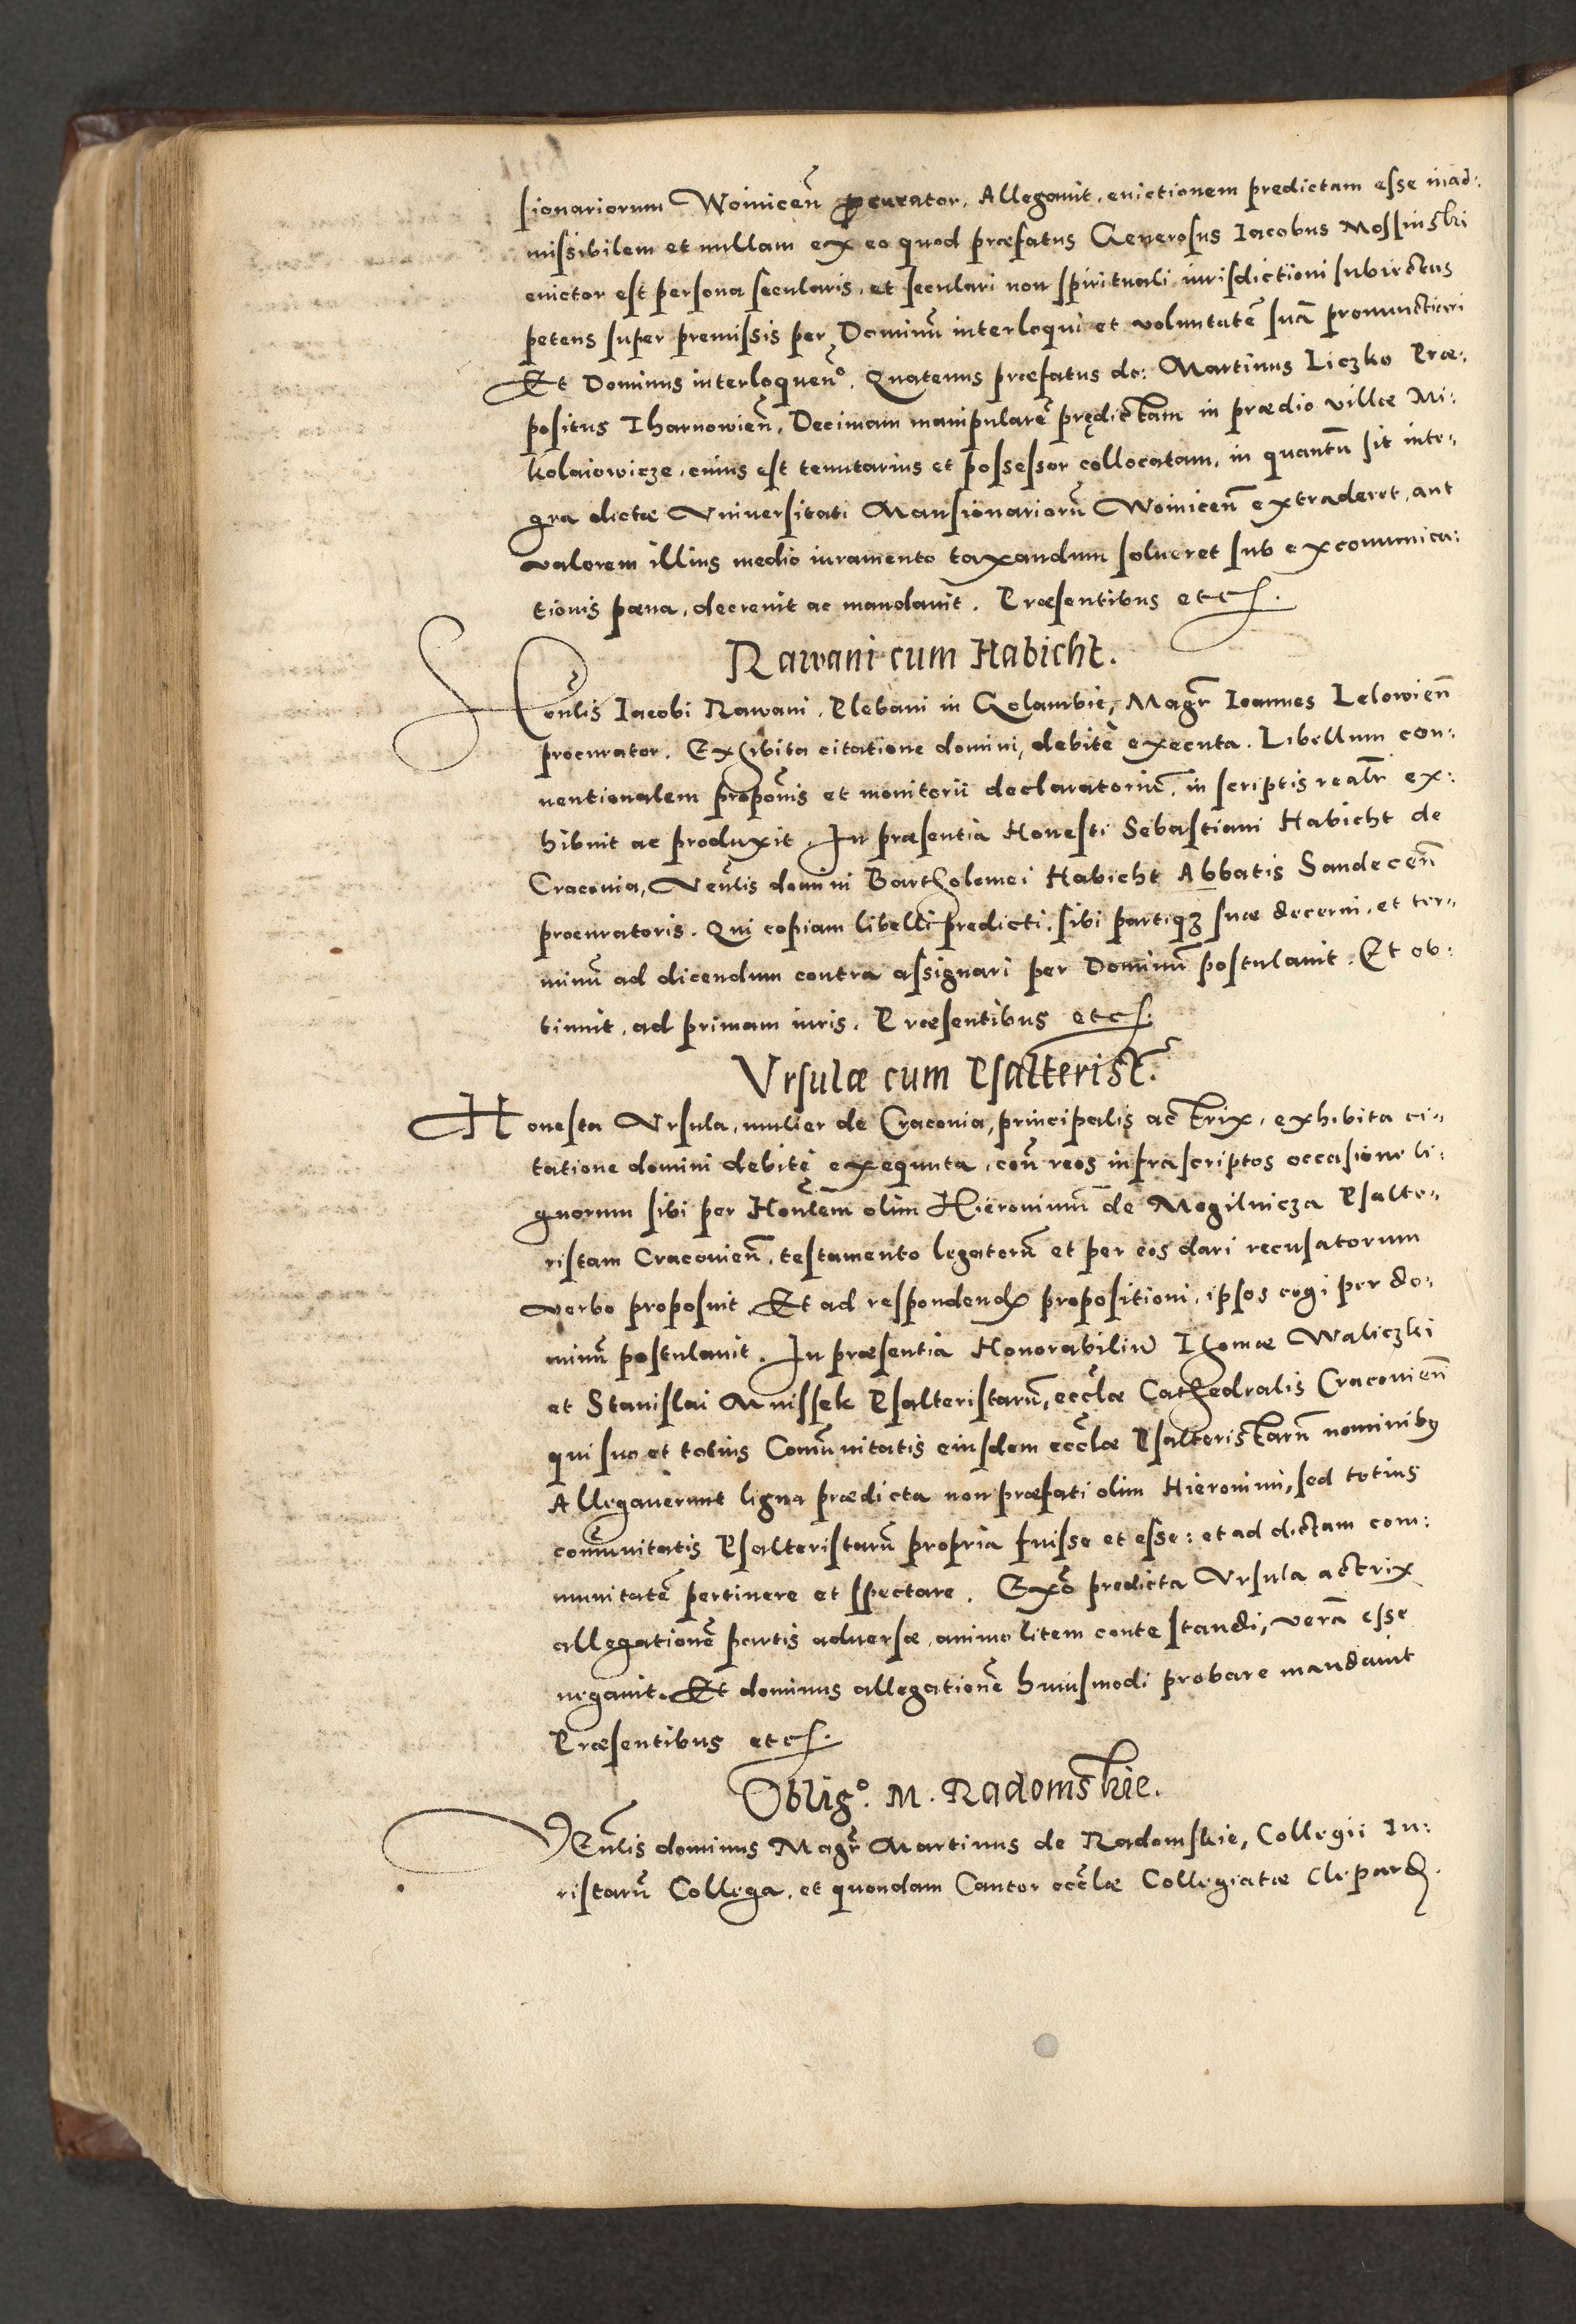 sionariorum Woinicen̄ procurator. Allegauit, euictionem predictam esse inad:
missibilem et nullam ex eo quod præfatus Generosus Iacobus Mossinski
euictor est persona secularis, et seculari non spirituali iurisdictioni subiectus
petens super premissis per Dominū interloqui et voluntatē suā pronunctiari
Et Dominus interloquen̄º. Quatenus præfatus do: Martinus Liczko Præ:
positus Tharnowien̄, Decimam manipularē prędictam in prædio villæ Mi:
kolaiowicze, cuius est tenutarius et possessor collocatam, in quantū sit inte-
gra dictæ Vniuersitati Mansionariorū Woinicen̄ extraderet, aut
valorem illius medio iuramento taxandum solueret sub excomunica:
tionis pæna, decreuit ac mandauit. Præsentibus etc.
Rawani cum Habicht.
Honlis Iacobi Rawani, Plebani in Golambie, Magr̄ Ioannes Lelowien̄
procurator. Exhibita citatione domini, debite executa. Libellum con:
uentionalem propōnis et monitorii declaratoriū, in scriptis realr̄ ex:
hibuit ac produxit. In præsentia Honesti Sebastiani Habicht de
Craconia, Venlis domini Bartholomei Habicht Abbatis Sandecen̄
procuratoris. Qui copiam libelli predicti, sibi partiqꝫ suæ decerni, et ter-
minū ad dicendum contra assignari per Dominū postulauit. Et ob:
tinuit, ad primam iuris. Præsentibus etc.
Vrsulæ cum Psalterist.
Honesta Vrsula, mulier de Craconia, principalis actrix, exhibita ci-
tatione domini debite exequuta, con̄ reos infrascriptos occasione li:
gnorum sibi per Honlem olim Hieronimū de Mogilnicza Psalte-
ristam Craconien̄, testamento legatorū et per eos dari recusatorum
verbo proposuit. Et ad respondend propositioni, ipsos cogi per do-
minū postulauit. In præsentia Honorabiliū Thomæ Waliczki
et Stanislai Mnissek Psalteristarū, eccłæ Cathedralis Craconien̄
qui suo et totius Comūnitatis eiusdem eccłæ Psalteristarū nominibꝰ
Allegauerunt ligna prædicta non præfati olim Hieronimi, sed totius
comūnitatis Psalteristarū propria fuisse et esse: et ad dictam com:
munitatē pertinere et spectare. Exō predicta Vrsula actrix
allegationē partis aduersæ, animo litem contestandi, verā esse
negauit. Et dominus allegationē huiusmodi probare mandauit
Præsentibus etc.
Obligº. M. Radomskie.
Venlis dominus Magr̄ Martinus de Radomskie, Collegii Iu:
ristarū Collega, et quondam Cantor eccłæ Collegiatæ Clepard.